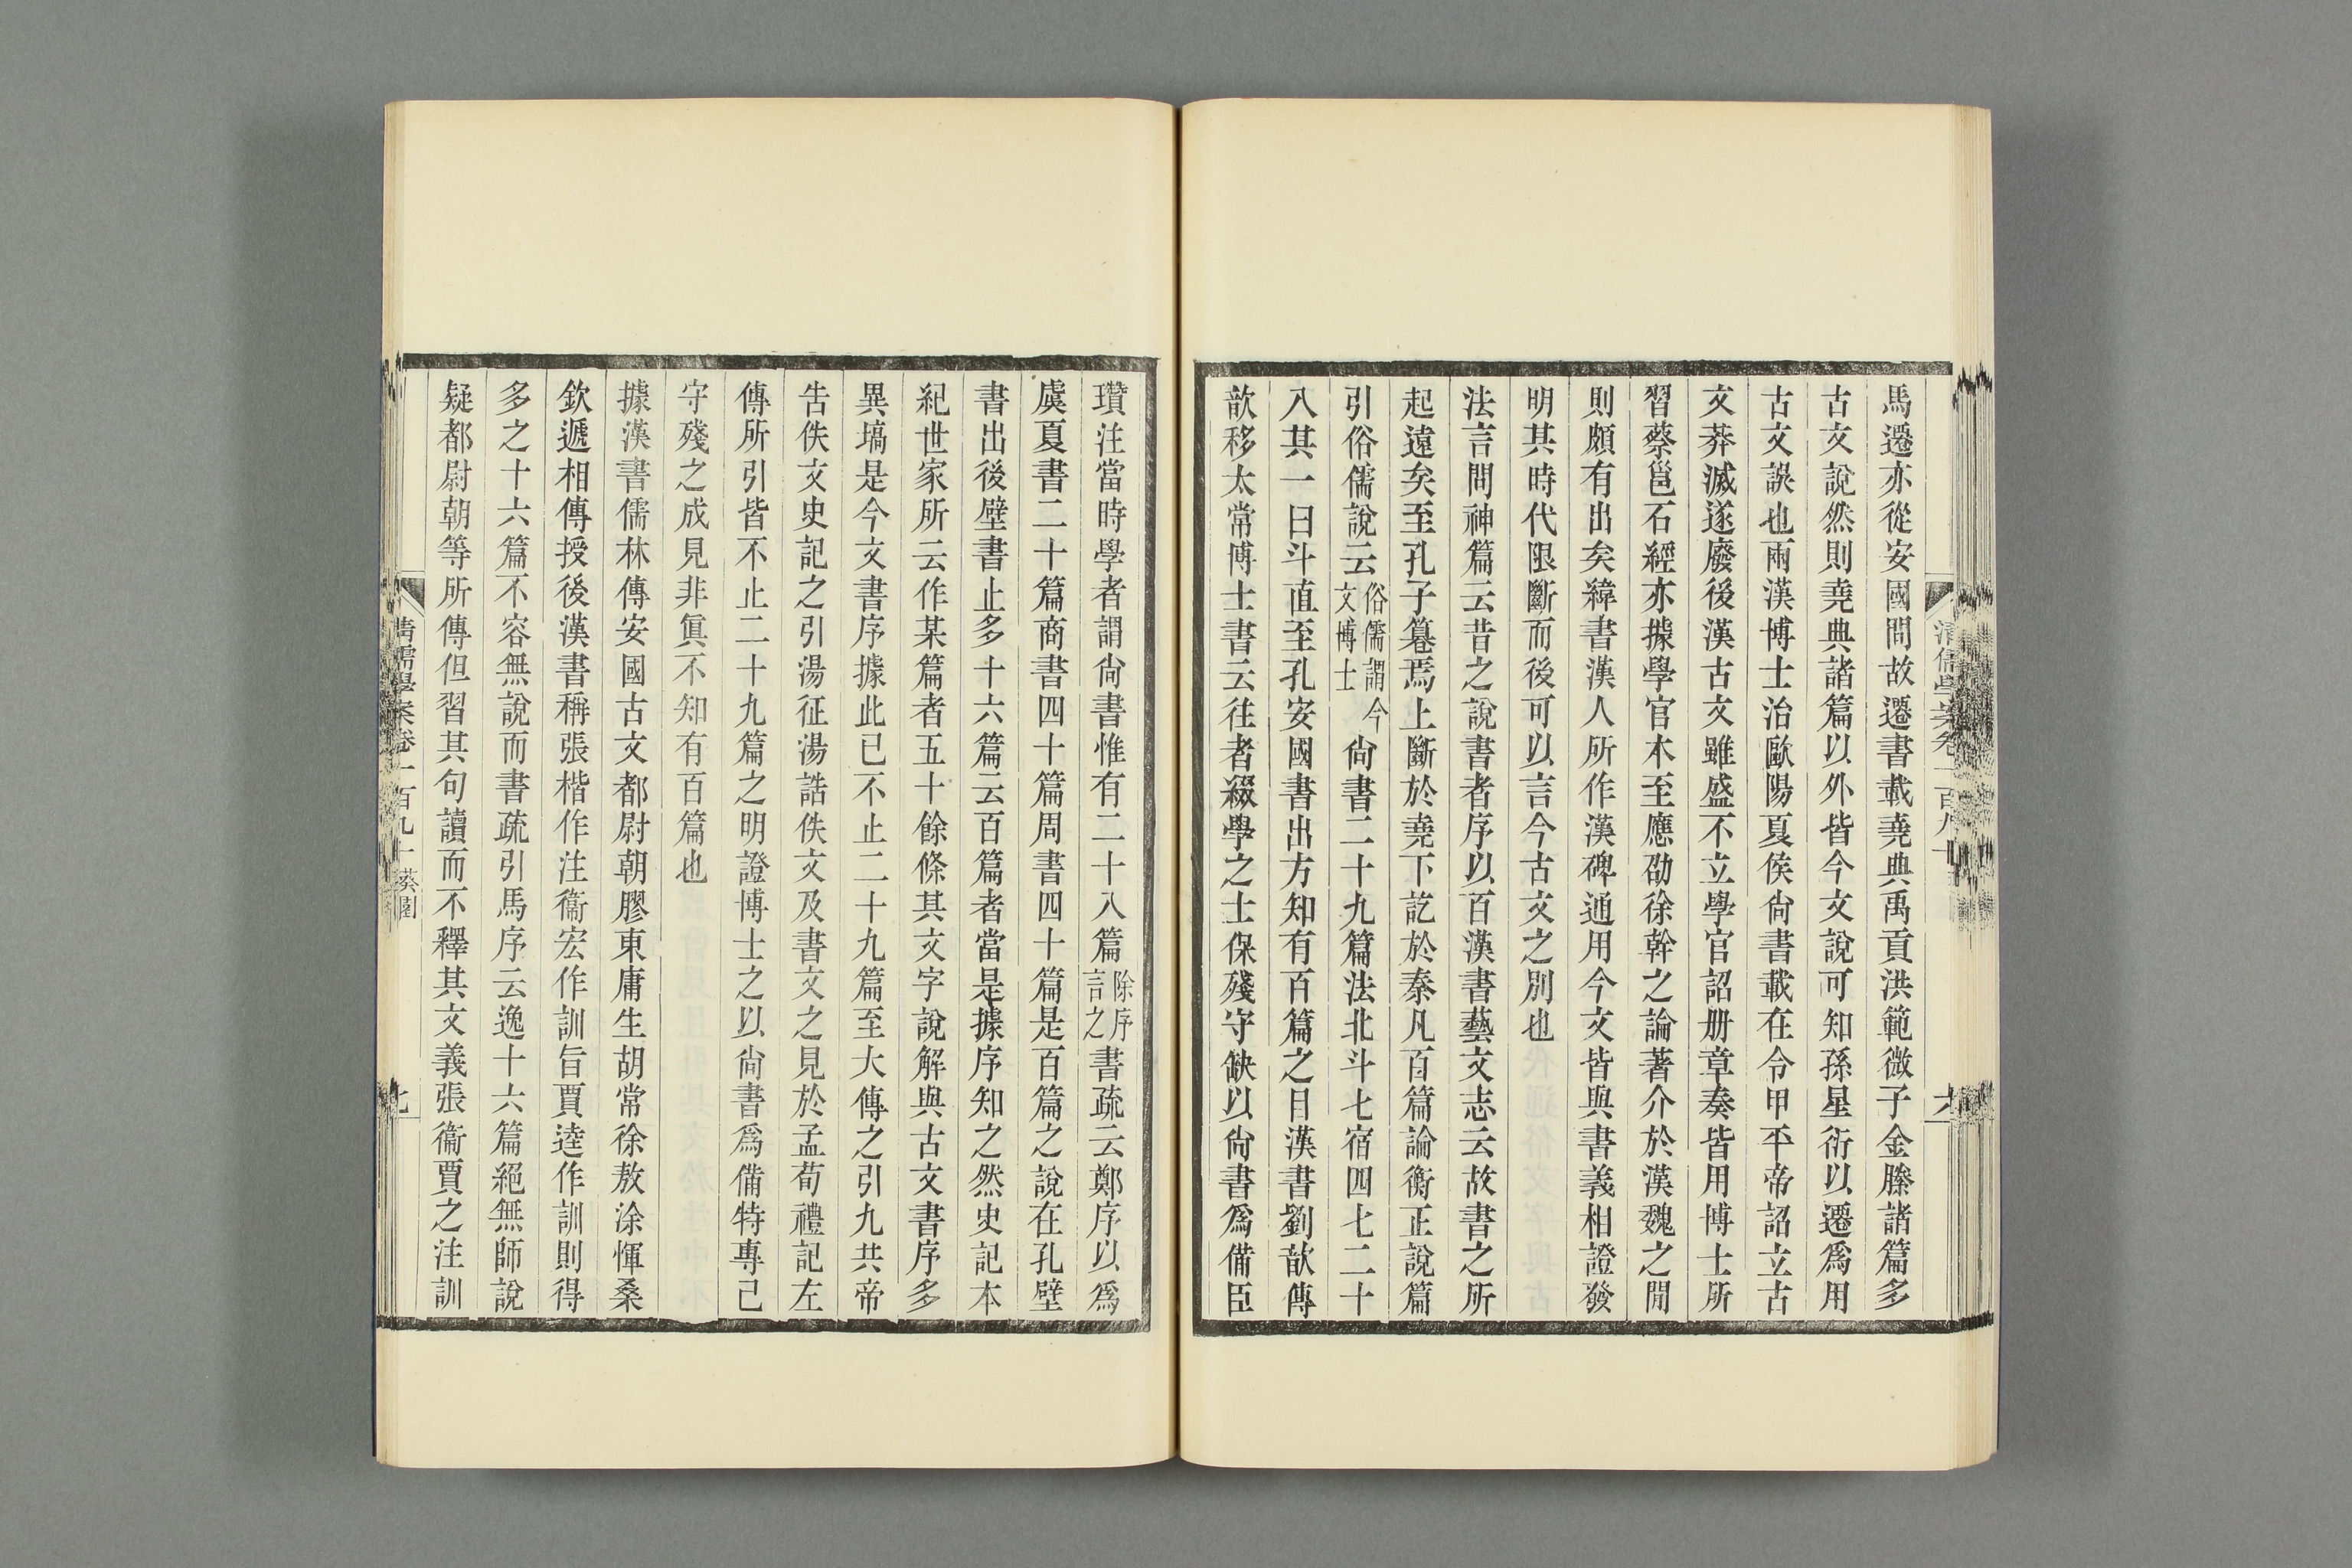 馬遷亦從安國問故遷書載堯典禹貢洪範微子金縢諸篇多
古文說然則堯典諸篇以外皆今文說可知孫星衍以遷爲用
古文誤也兩漢博士治歐陽夏侯尙書載在令甲平帝詔立古
文莽滅遂廢後漢古文雖盛不立學官詔册章奏皆用博士所
習蔡邕石經亦據學官本至應劭徐幹之論著介於漢魏之閒
則頗有出矣緯書漢人所作漢碑通用今文皆與書義相證發
明其時代限斷而後可以言今古文之別也
法言問神篇云昔之說書者序以百漢書藝文志云故書之所
起遠矣至孔子篹焉上斷於堯下訖於秦凡百篇論衡正說篇
引俗儒說云俗儒謂今文博士尙書二十九篇法北斗七宿四七二十
八其一曰斗直至孔安國書出方知有百篇之目漢書劉歆傳
歆移太常博士書云往者綴學之士保殘守缺以尙書爲備臣
瓚注當時學者謂尙書惟有二十八篇除序言之書疏云鄭序以爲
虞夏書二十篇商書四十篇周書四十篇是百篇之說在孔壁
書出後壁書止多十六篇云百篇者當是據序知之然史記本
紀世家所云作某篇者五十餘條其文字說解與古文書序多
異塙是今文書序據此已不止二十九篇至大傳之引九共帝
告佚文史記之引湯征湯誥佚文及書文之見於孟荀禮記左
傳所引皆不止二十九篇之明證博士之以尙書爲備特專己
守殘之成見非眞不知有百篇也
據漢書儒林傳安國古文都尉朝膠東庸生胡常徐敖涂惲桑
欽遞相傳授後漢書稱張楷作注衞宏作訓旨賈逵作訓則得
多之十六篇不容無說而書疏引馬序云逸十六篇絕無師說
疑都尉朝等所傳但習其句讀而不釋其文義張衞賈之注訓
清儒學案卷一百九十 葵園
七